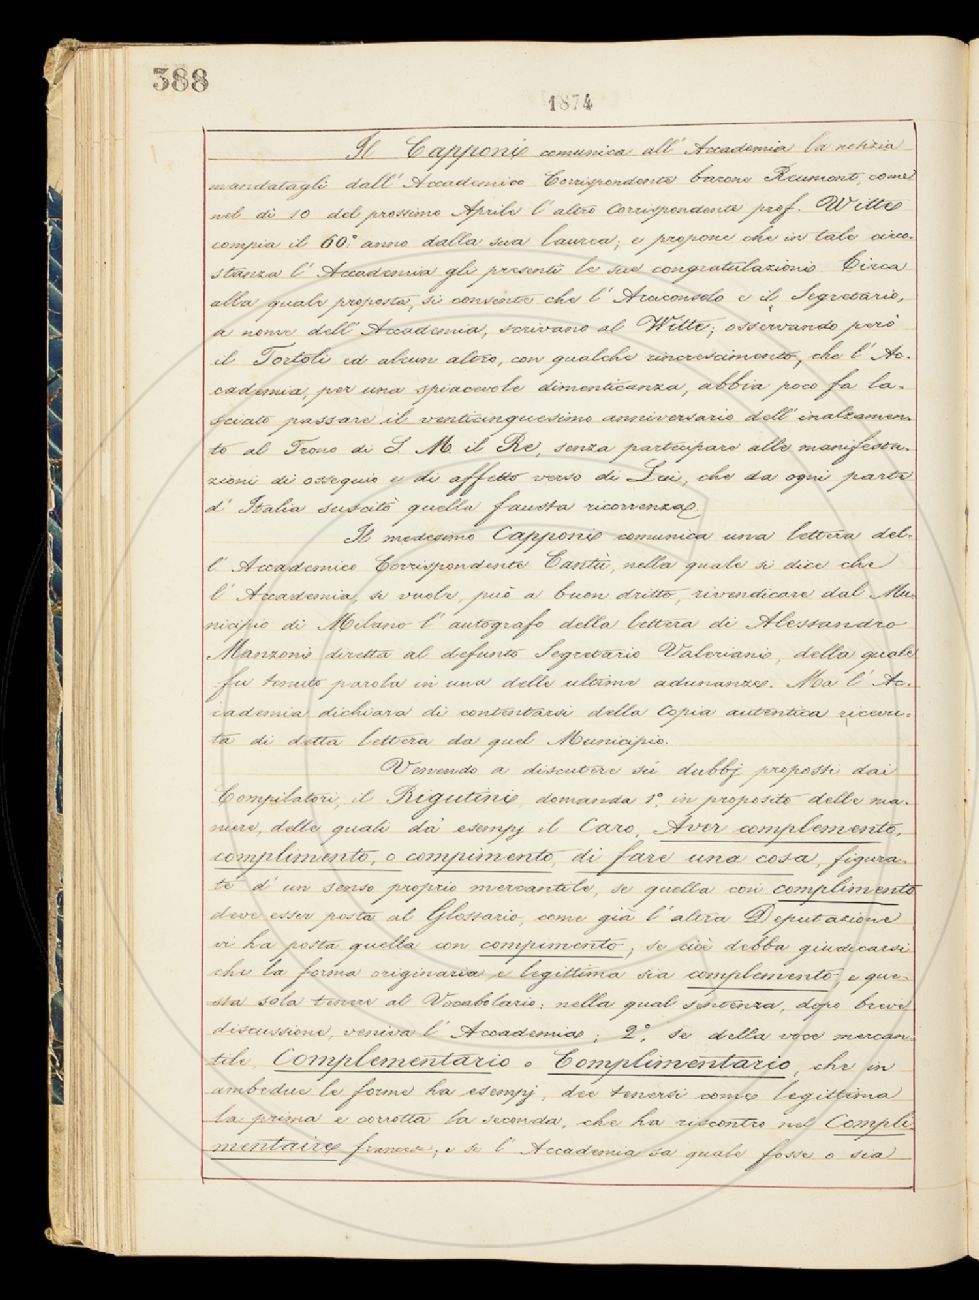 388
1874
Il Capponi comunica all' Accademia la notizia
mandatagli dall' Accademico Corrispondente barone Reumont, come
nel dì 10 del prossimo Aprile l' altro Corrispondente prof. Witte
compia il 60.° anno dalla sua laurea, e propone che in tale circo-
stanza l' Accademia gli presenti le sue congratulazioni. Circa
alla quale proposta, si consente che l' Arciconsolo e il Segretario,
a nome dell' Accademia, scrivano al Witte; osservando però
il Tortoli ed alcun altro, con qualche rincrescimento, che l' Ac-
cademia, per una spiacevole dimenticanza, abbia poco fa la-
sciato passare il venticinquesimo anniversario dell' inalzamen-
to al Trono di S. M. il Re, senza partecipare alle manifesta-
zioni di ossequio e di affetto verso di Lui, che da ogni parte
d' Italia suscitò quella fausta ricorrenza.
Il medesimo Capponi comunica una lettera del-
l' Accademico Corrispondente Cantù, nella quale si dice che
l' Accademia, se vuole, può a buon dritto, rivendicare dal Mu-
nicipio di Milano l' autografo della lettera di Alessandro
Manzoni diretta al defunto Segretario Valeriani, della quale
fu tenuto parola in una delle ultime adunanze. Ma l' Ac-
cademia dichiara di contentarsi della copia autentica ricevu-
ta di detta lettera da quel Municipio.
Venendo a discutere sui dubbj proposti dai
Compilatori, il Rigutini domanda 1.° in proposito delle ma-
niere, delle quali dà esempj il Caro, Aver complemento,
complimento, o compimento, di fare una cosa, figura-
te d' un senso proprio mercantile, se quella con complimento
deve esser posta al Glossario, come già l' altra Deputazione
vi ha posta quella con compimento; se cioè debba giudicarsi
che la forma originaria e legittima sia complemento e que-
sta sola tenere al Vocabolario: nella qual sentenza, dopo breve
discussione, veniva l' Accademia; 2.° se della voce mercan-
tile, Complementario o Complimentario, che in
ambedue le forme ha esempj, dee tenersi come legittima
la prima e corrotta la seconda, che ha riscontro nel Compli-
mentaire francese; e se l' Accademia sa quale fosse o sia